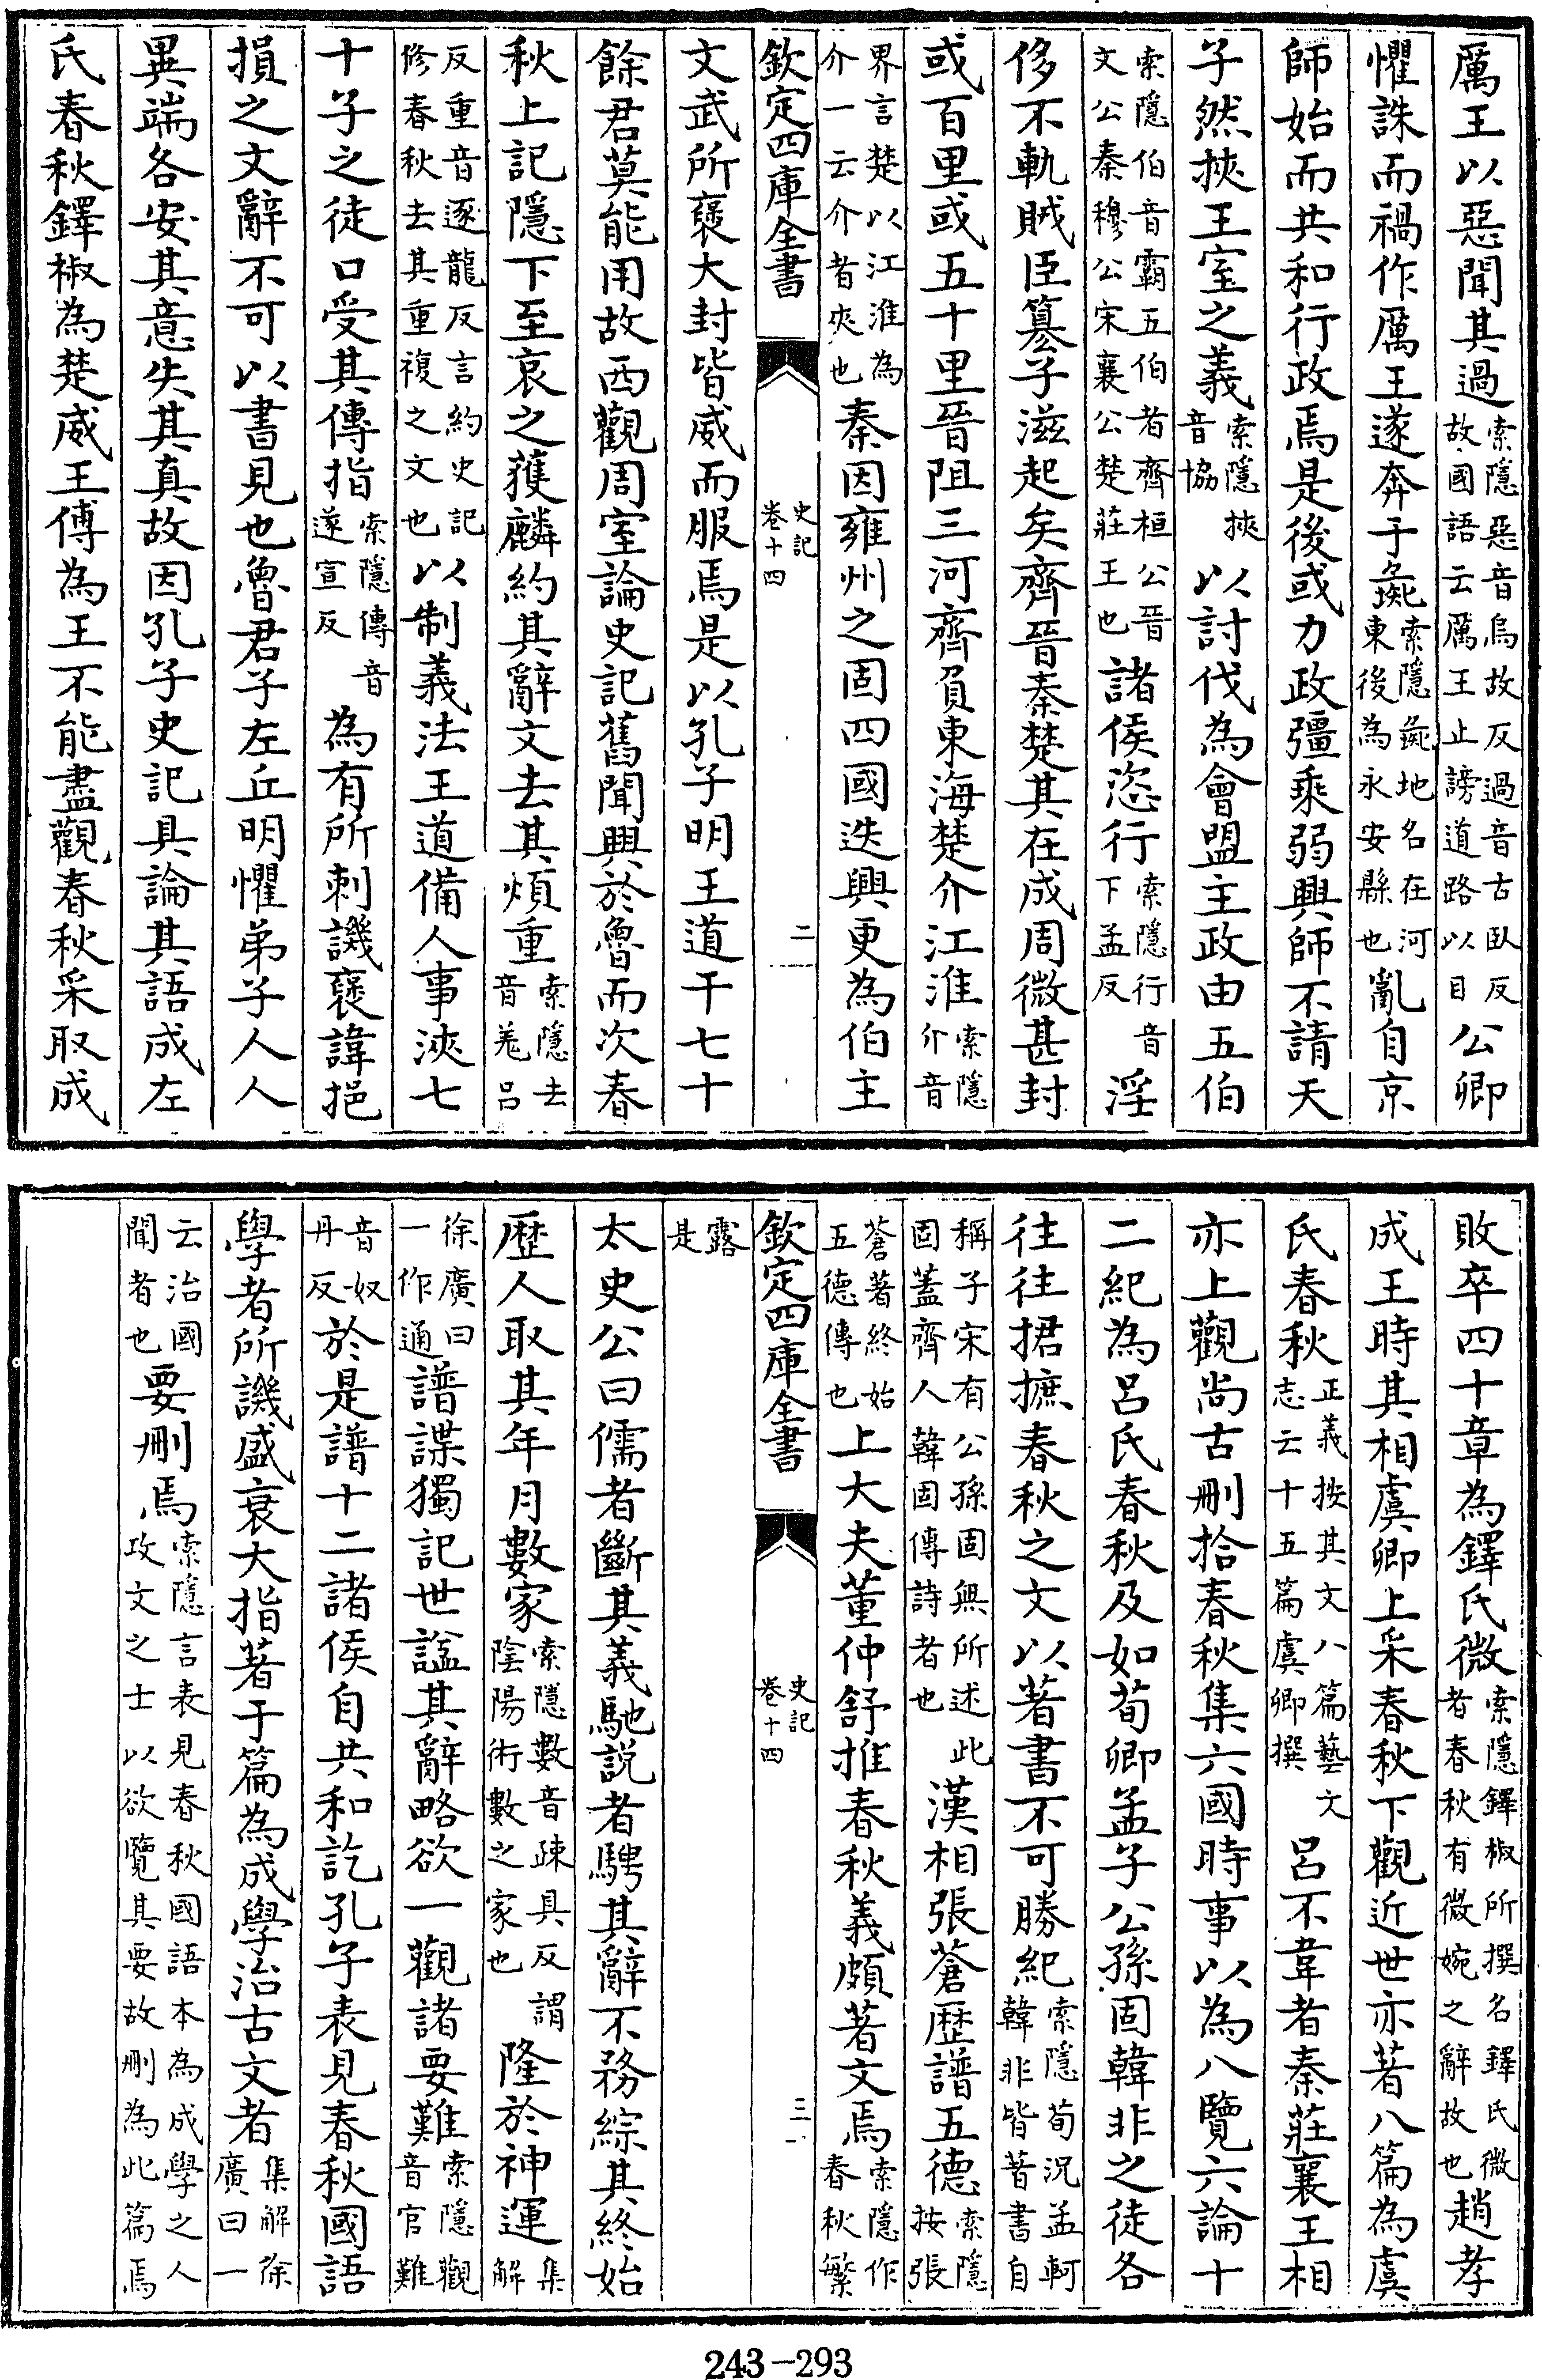 厲王以惡聞其過索隱惡音烏故反過音古臥反故國語云厲王止謗道路以目公卿
懼誅而禍作厲王遂奔于彘索隱彘地名在河東後為永安縣也亂自京
師始而共和行政焉是後或力政彊乘弱興師不請天
子然挾王室之義索隱挾音協以討伐為會盟主政由五伯
索隱伯音霸五伯者齊桓公晉文公秦穆公宋襄公楚莊王也諸侯恣行索隱行音下孟反淫
侈不軌賊臣篡子滋起矣齊晉秦楚其在成周微甚封
或百里或五十里晉阻三河齊負東海楚介江淮索隱介音
界言楚以江淮為介一云介者夾也秦因雍州之固四國迭興更為伯主
欽定四庫全書 史記卷十四 二
文武所褒大封皆威而服焉是以孔子明王道干七十
餘君莫能用故西觀周室論史記舊聞興於魯而次春
秋上記隱下至哀之獲麟約其辭文去其煩重索隱去音羌呂
反重音逐龍反言約史記修春秋去其重複之文也以制義法王道備人事浹七
十子之徒口受其傳指索隱傳音逐宣反為有所刺譏褒諱挹
損之文辭不可以書見也魯君子左丘明懼弟子人人
異端各安其意失其真故因孔子史記具論其語成左
氏春秋鐸椒為楚威王傅為王不能盡觀春秋采取成
敗卒四十章為鐸氏微索隱鐸椒所撰名鐸氏微者春秋有微婉之辭故也趙孝
成王時其相虞卿上采春秋下觀近世亦著八篇為虞
氏春秋正義按其文八篇藝文志云十五篇虞卿撰呂不韋者秦莊襄王相
亦上觀尚古刪拾春秋集六國時事以為八覽六論十
二紀為呂氏春秋及如荀卿孟子公孫固韓非之徒各
往往捃摭春秋之文以著書不可勝紀索隱荀況孟軻韓非皆著書自
稱子宋有公孫固無所述此固蓋齊人韓固傳詩者也漢相張蒼歷譜五德索隱按張
蒼著終始五德傳也上大夫董仲舒推春秋義頗著文焉索隱作春秋繁
欽定四庫全書 史記卷十四 三
露是
太史公曰儒者斷其義馳說者騁其辭不務綜其終始
歷人取其年月數家索隱數音疎具反謂陰陽術數之家也隆於神運集解
徐廣曰一作通譜諜獨記世謚其辭略欲一觀諸要難索隱觀音官難
音奴丹反於是譜十二諸侯自共和訖孔子表見春秋國語
學者所譏盛衰大指著于篇為成學治古文者集解徐廣曰一
云治國聞者也要刪焉索隱言表見春秋國語本為成學之人攻文之士以欲覽其要故刪為此篇焉
243-293